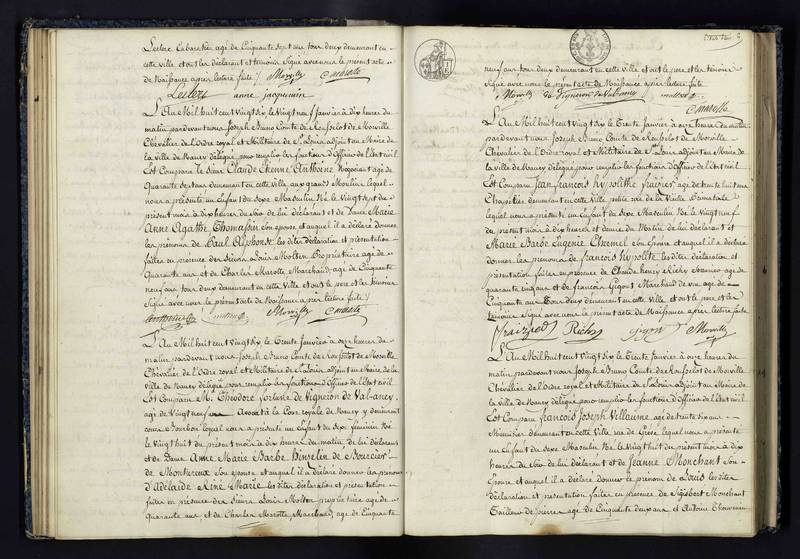 Leclerc Cabaretier agé de Cinquante sept ans tous deux demeurant en
cette ville et ont les déclarant et temoins signé avec nous le présent acte
de Naissance après lecture faite /. Morville Marotte
Leclerc anne jacquemin
L'An Mil huit cent Vingt Six le Vingt neuf Janvier à dix heures du
matin pardevant nous Joseph Bruno Comte de Rousselot de Morville
Chevalier de l'Ordre royal et Militaire de St Louis adjoint au Maire de
la ville de Nancy délégué pour remplir les fonctions d'Officier de l'état civil
Est Comparu le Sieur Claude Etienne Anthoine Négociant agé de
Quarante six ans demeurant en cette Ville aux grands Moulins lequel
nous a présenté un Enfant du Sexe Masculin Né le Vingt sept du
présent mois à dix heures du Soir de lui déclarant et de Dame Marie
Anne Agathe Thomassin Son épouse et auquel il a déclaré donner
les prénoms de Paul Alphonse les dites déclaration et présentation
faites en présence des Sieurs Louis Propriétaire agé de
Quarante ans et de Charles Marotte Marchand agé de Cinquante
neuf ans tous deux demeurant en cette Ville et ont le père et les témoins
Signé avec nous le présent acte de Naissance après lecture faite /.
Morville Marotte
L'An Mil huit cent Vingt Six le Trente Janvier à onze heures du
matin pardevant nous Joseph Bruno Comte de Rousselot de Morville
Chevalier de l'Ordre royal et Militaire de St Louis adjoint au Maire de la
Ville de Nancy délégué pour remplir les fonctions d'Officier de l'Etat Civil
Est Comparu Mr. Théodore de Vigneron de Val-ancy
agé de Vingt neuf ans Avocat à la Cour royale de Nancy y demeurant
cour Bourbon lequel nous a présenté un Enfant du Sexe féminin Né
le Vingt huit du présent mois à dix heures du matin de lui déclarant
et de Dame Anne Marie Barbe hinselin de Bourcier
de Montureux Son épouse et auquel il a déclaré donner les prénoms
d'Adélaïde Marie les dites déclaration et présentation
faites en présence des Sieurs Louis propriétaire agé de
quarante ans et de Charles Marotte Marchand, agé de Cinquante
neuf ans tous deux demeurant en cette ville et ont le père et les témoins
Signé avec nous le présent acte de Naissance après lecture faite
Morville de Vigneron de Marotte
L'An Mil huit cent Vingt Six le Trente Janvier à onze heures du matin
pardevant nous Joseph Bruno Comte de Rousselot de Morville
Chevalier de l'Ordre royal et Militaire de St Louis adjoint au Maire de
la ville de Nancy délégué pour remplir les fonctions d'Officier de l'Etat civil
Est Comparu Jean françois hypolithe fraizier agé de trente huit ans
Charpentier demeurant en cette Ville petite rue de la Vieille
lequel nous a présenté un Enfant du Sexe Masculin Né le Vingt neuf
du présent mois à dix heures et demie du Matin de lui déclarant et
Marie Barbe Eugenie Chemel Son épouse et auquel il a déclaré
donner les prénoms de françois hypolite les dites déclaration et
présentation faites en présence de Claude henry Richy agé de
quarante cinq ans et de françois Gigon Marchand de vin agé de
Cinquante ans tous deux demeurant en cette Ville et ont le père et les
témoins Signé avec nous le présent acte de Naissance après lecture faite
Richy Gigon Morville
L'An Mil huit cent Vingt Six le Trente Janvier à onze heures du
matin pardevant nous Joseph Bruno Comte de Rousselot de Morville
Chevalier de l'Ordre royal et Militaire de St Louis adjoint au Maire de
la ville de Nancy délégué pour remplir les fonctions d'Officier de l'Etat civil
Est Comparu francois Joseph Villaume agé de trente six ans
Menuisier demeurant en cette Ville rue de Grève lequel nous a présenté
un Enfant du Sexe Masculin Né le Vingt huit du présent mois à dix
heures du Soir de lui déclarant et de Jeanne Monchant Son
Epouse et auquel il a déclaré donner le prénom de Louis les dites
déclaration et présentation faites en présence de Sigisbert Monchant
Tailleur de pierres agé de Cinquante deux ans et Antoine